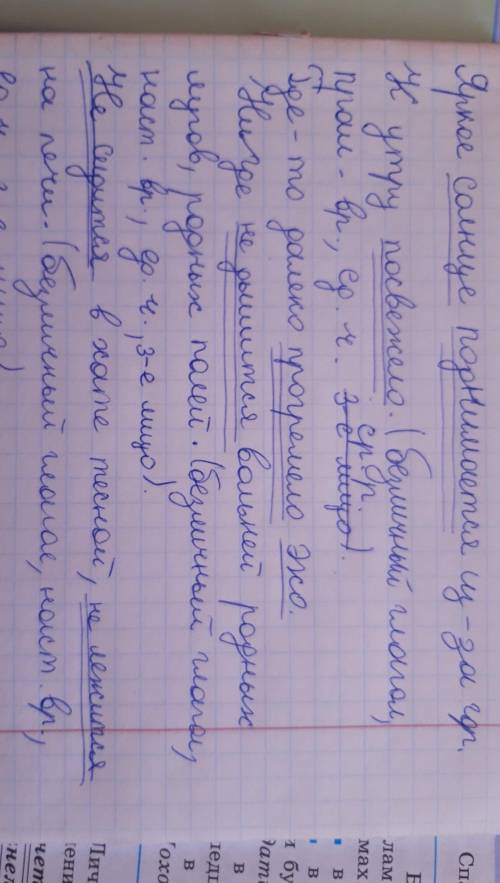 Яркое солнце поднимается из-за гр.
К утру посвежело. (безличный глагол,
прош. вр., ед. ч. 3-е лицо).
ср. р.
Где-то далеко прогремело эхо.
Нигде не дышится вольней родных
лугов, родных полей. (безличный глагол,
наст. вр., ед. ч., 3-е лицо).
Не сидится в хате тесной, не лежится
на печи. (безличный глагол, наст. вр.,
Сп
лам
мах
в
в
и бу
в
в
Лич